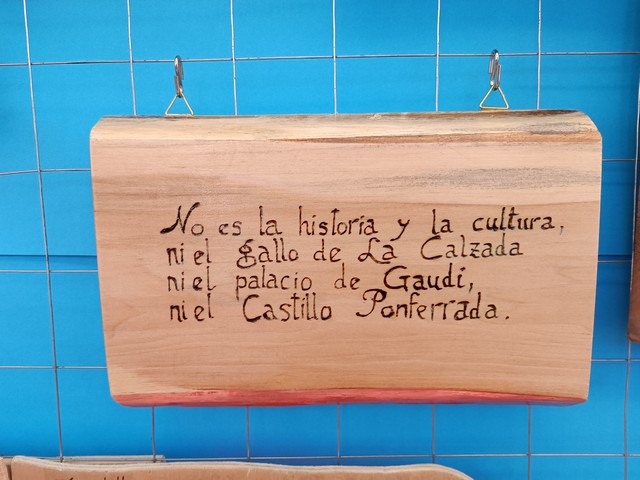 No es la historia y la cultura,
ni el gallo de La Calzada
ni el palacio de Gaudí,
ni el Castillo Ponferrada.